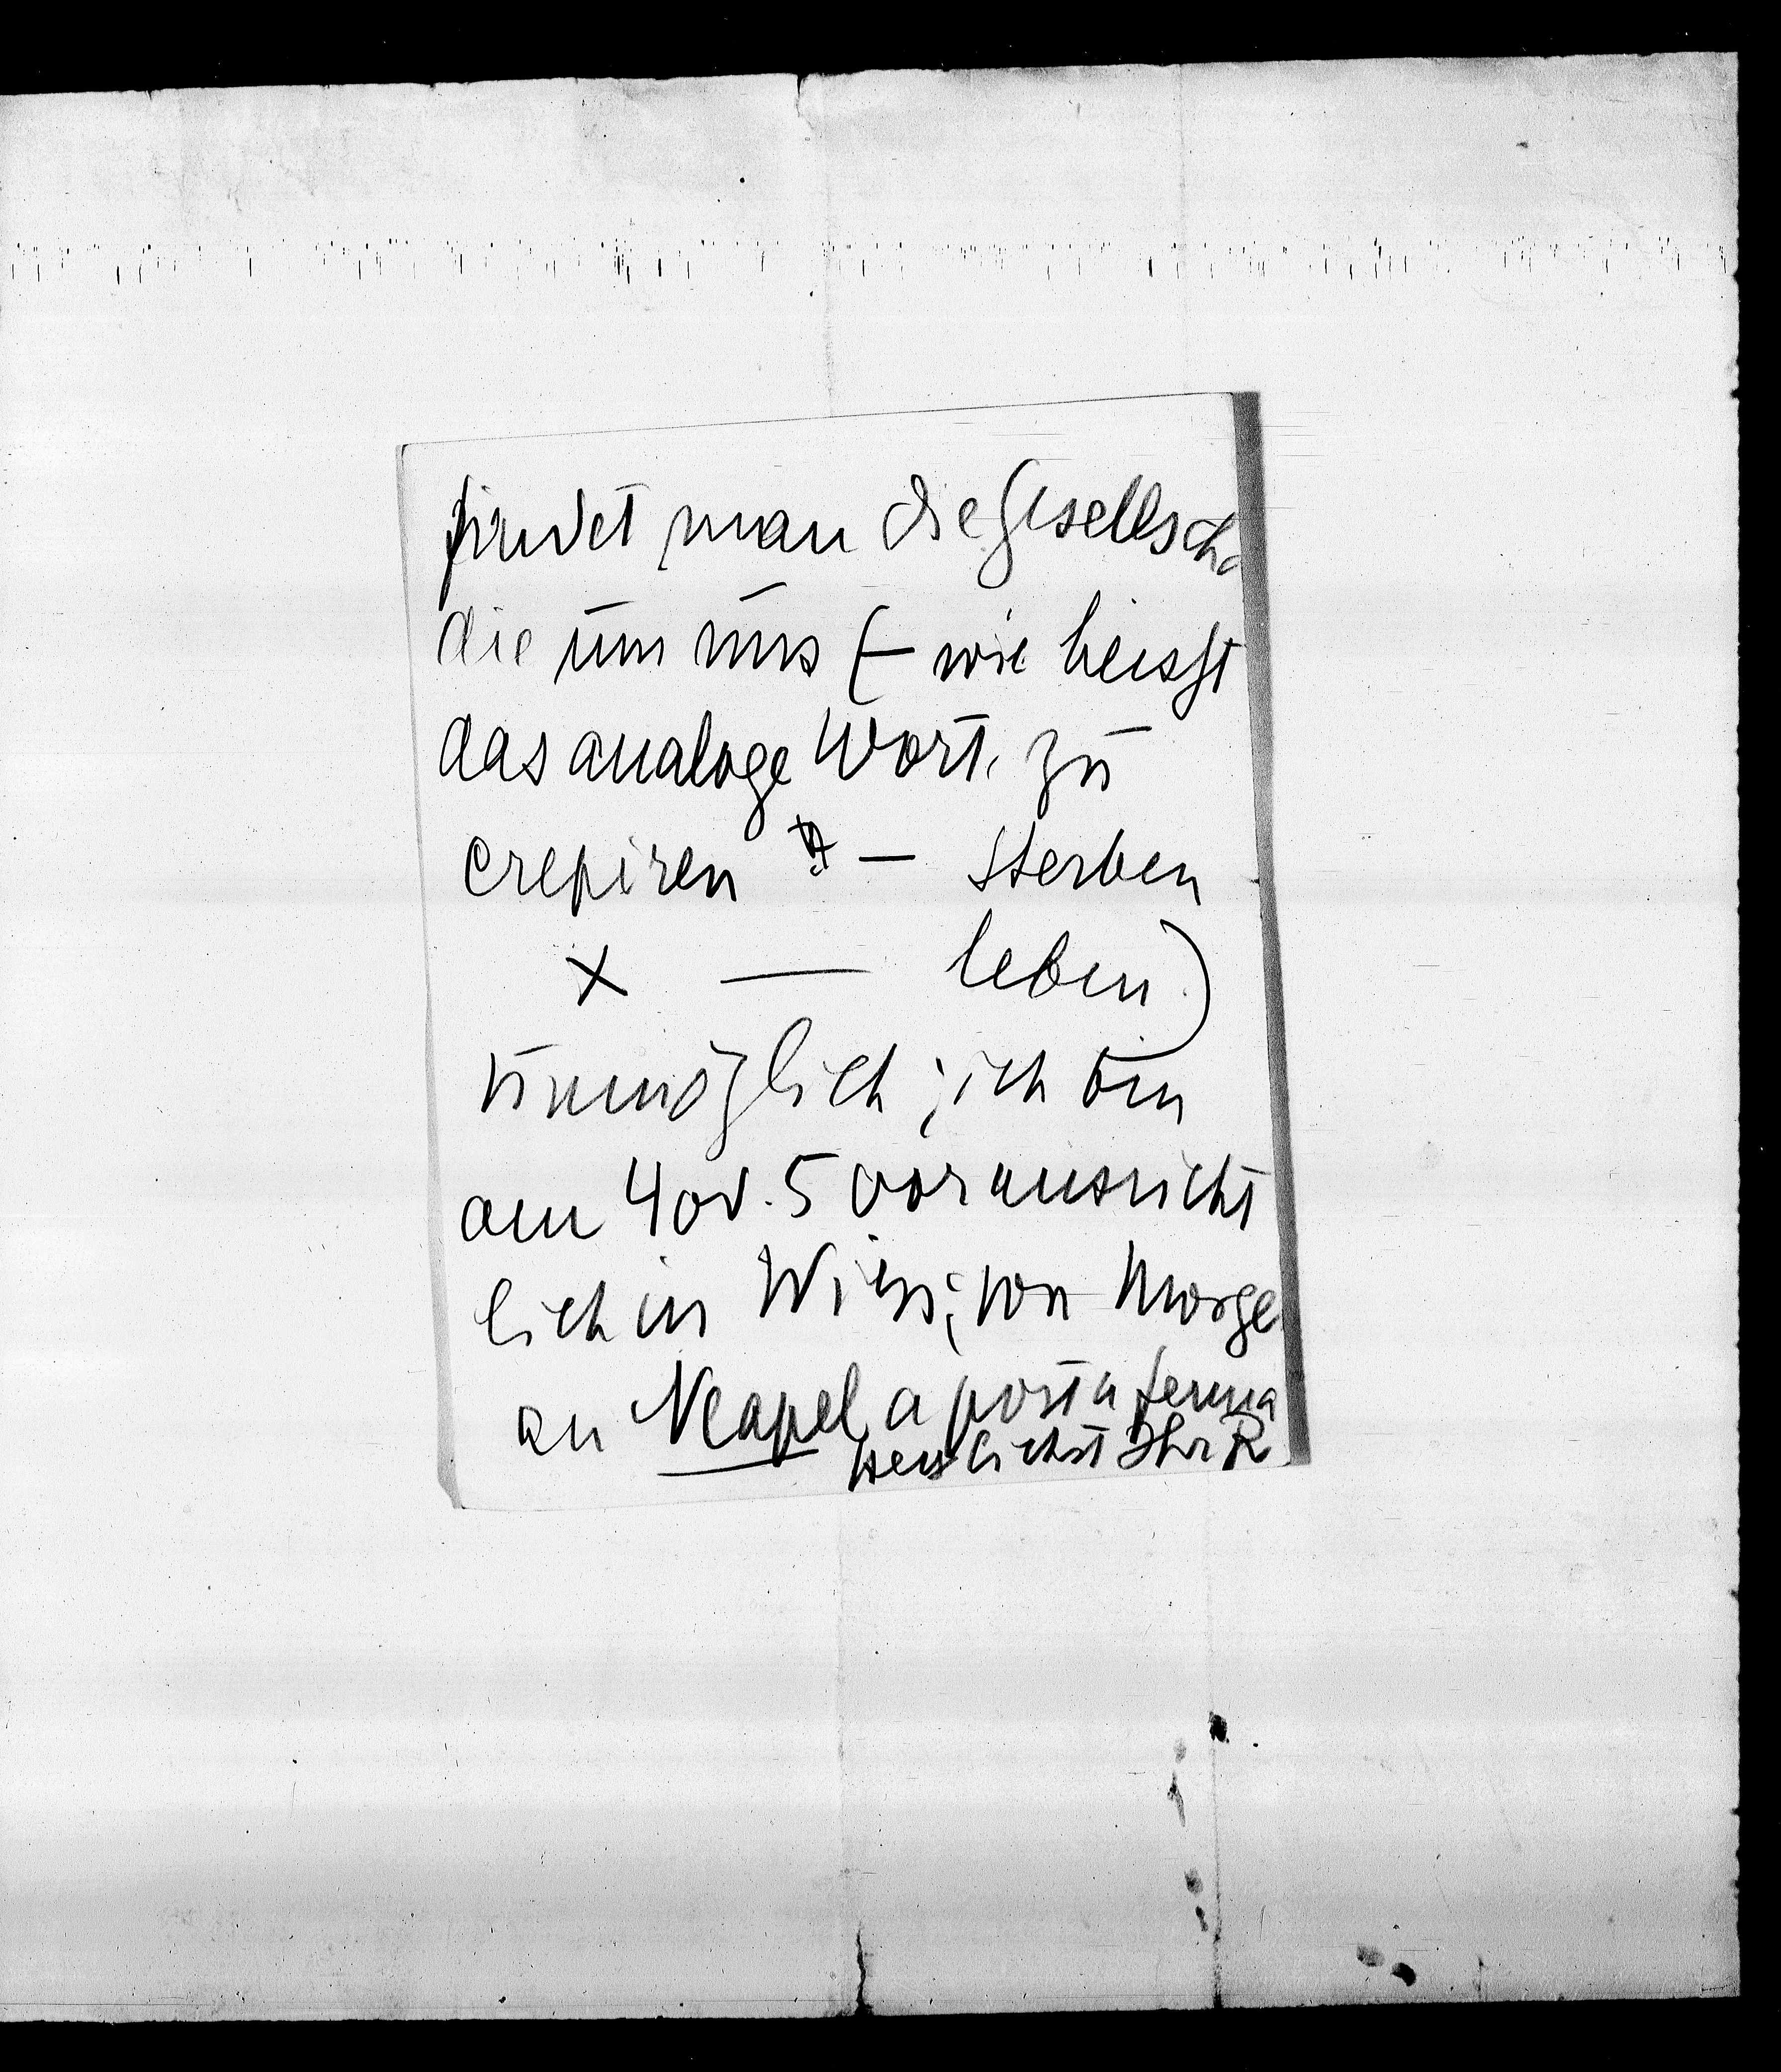 findet man die Gesellscha
die um uns (– wie heisst
das analoge Wort, zu
crepiren – sterben
x — leben)
unmöglich; ich bin
am 4 od. 5 voraussicht
lich in Wien; von Morge
an Neapel a posta ferma
herzlichst Ihr R